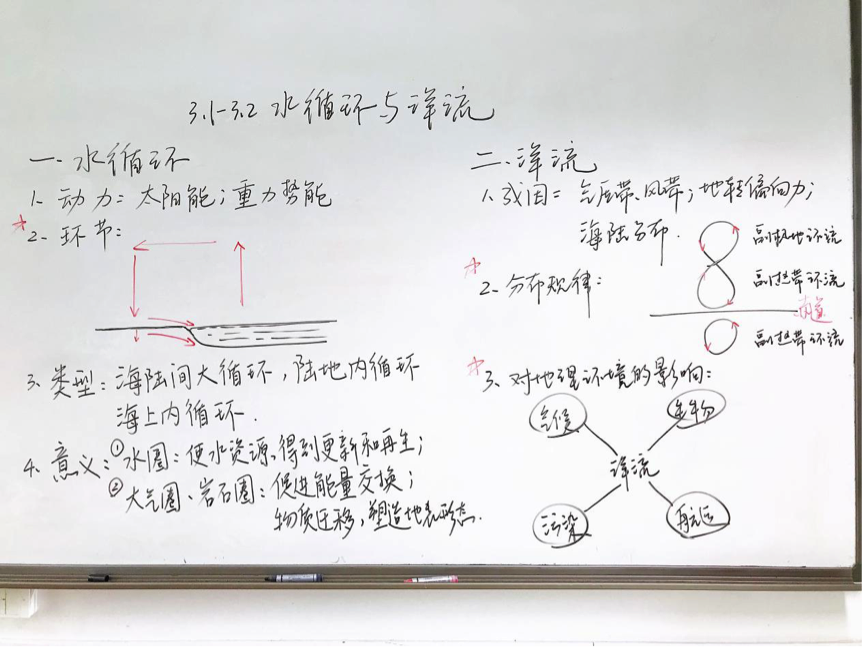 3.1-3.2 水循环与洋流
一. 水循环
1. 动力：太阳能；重力势能
2. 环节：
3. 类型：海陆间大循环，陆地内循环
海上内循环.
4. 意义：①水圈：使水资源得到更新和再生；
②大气圈、岩石圈：促进能量交换；
物质迁移，塑造地表形态.
二. 洋流
1. 成因：气压带、风带；地转偏向力；
海陆分布.
2. 分布规律：
副极地环流
副热带环流
赤道
副热带环流
3. 对地理环境的影响：
气候
生物
洋流
污染
航运